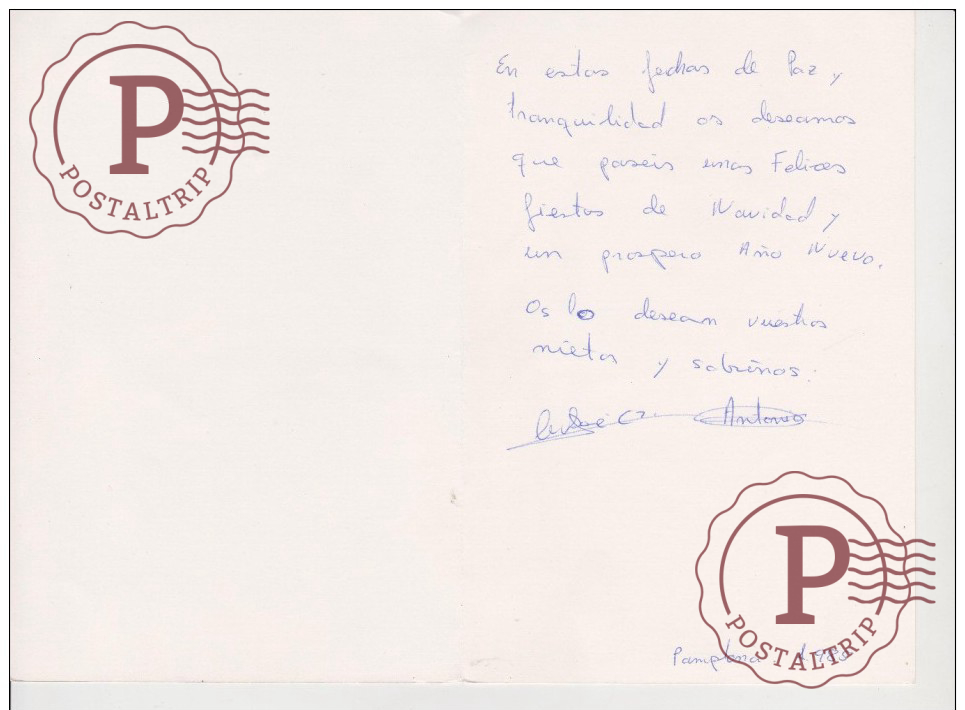 P
POSTALTRIP
En estas fechas de Paz y
tranquilidad os deseamos
que paseis unas Felices
fiestas de Navidad y
un prospero Año Nuevo.
Os lo desean vuestros
nietos y sobrinos:
Antonio
P
POSTALTRIP
Pamplona